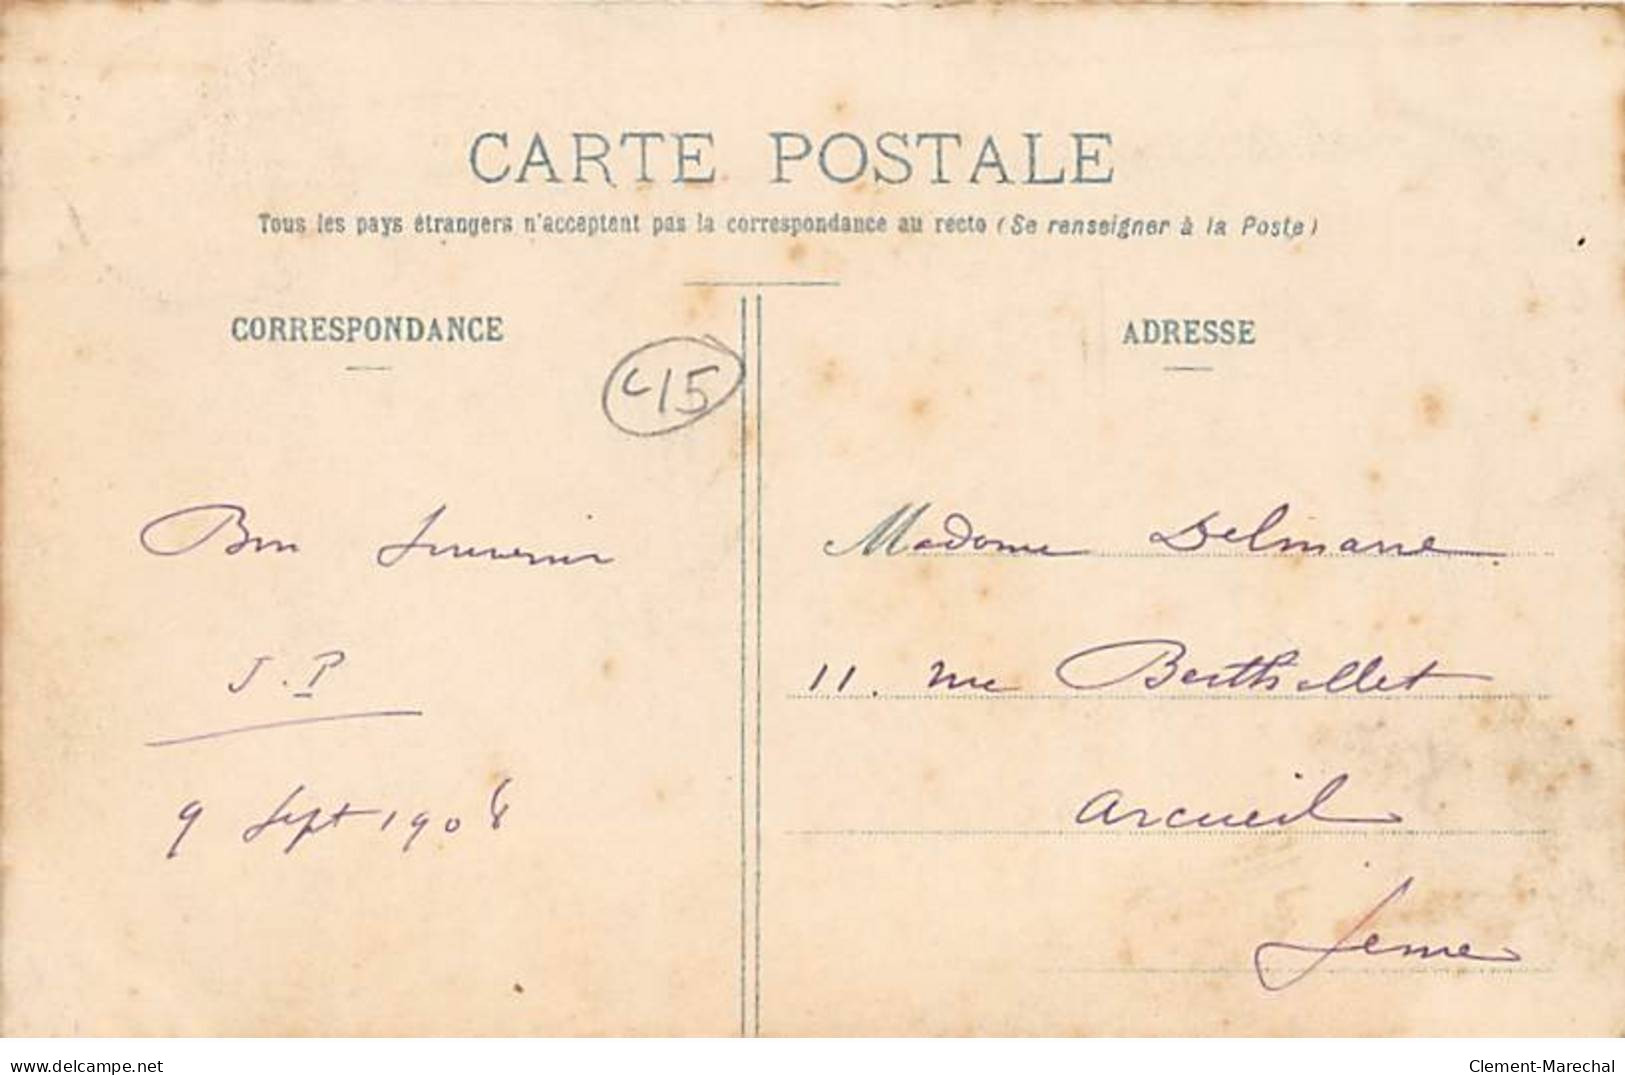 CARTE POSTALE
Tous les pays étrangers n'acceptent pas la correspondance au recto (Se renseigner à la Poste)
CORRESPONDANCE
45
Bon Souvenir
J. P
9 Sept 1908
ADRESSE
Madame
11. rue Berthollet
Arcueil
Seine
delcampe.net
Clement-Marechal